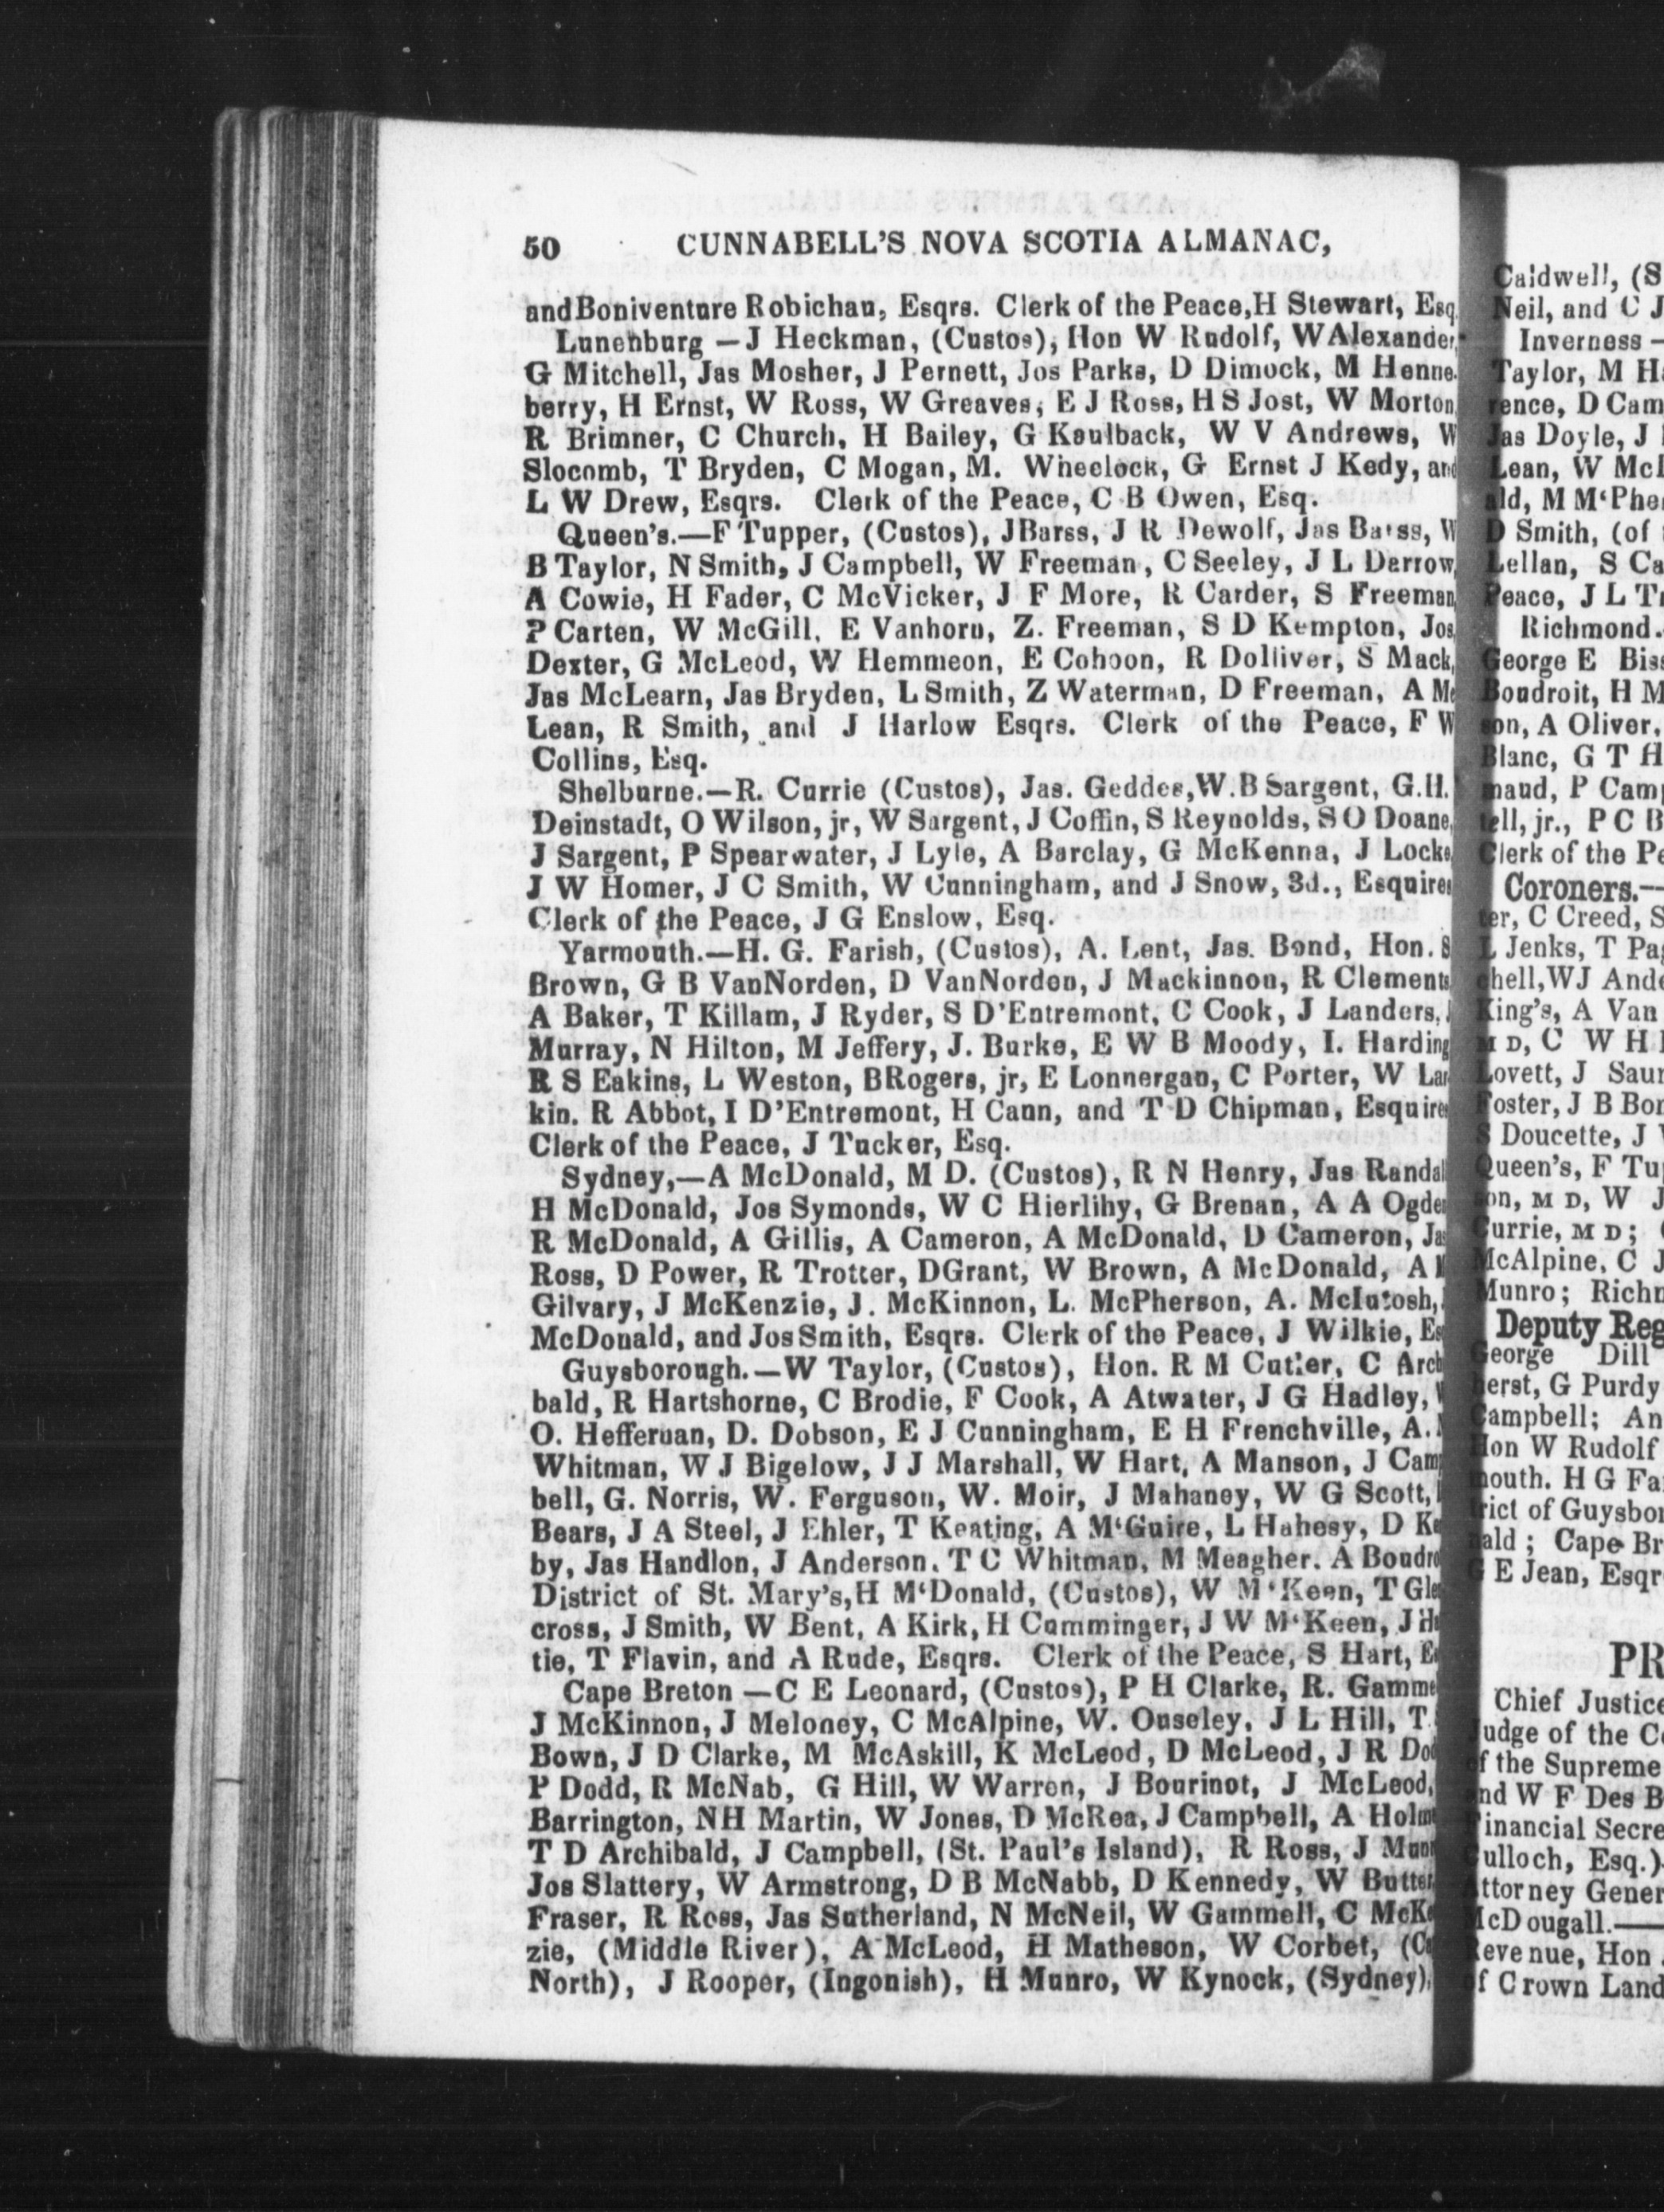 50 CUNNABELL'S NOVA SCOTIA ALMANAC,
andBoniventure Robichau, Esqrs. Clerk of the Peace,H Stewart, Esq
Lunenburg —J Heckman, (Custos), Hon W Rudolf, WAlexander,
G Mitchell, Jas Mosher, J Pernett, Jos Parks, D Dimock, M Henne-
berry, H Ernst, W Ross, W Greaves, E J Ross, HS Jost, W Morton,
R Brimner, C Church, H Bailey, G Kaulback, W V Andrews, W
Slocomb, T Bryden, C Mogan, M. Wheelock, G Ernst J Kedy, and
L W Drew, Esqrs. Clerk of the Peace, C B Owen, Esq.
Queen's.—F Tupper, (Custos), JBarss, J R Dewolf, Jas Barss, W
B Taylor, N Smith, J Campbell, W Freeman, C Seeley, J L Darrow,
A Cowie, H Fader, C McVicker, J F More, R Carder, S Freeman,
P Carten, W McGill, E Vanhorn, Z. Freeman, S D Kempton, Jos
Dexter, G McLeod, W Hemmeon, E Cohoon, R Dolliver, S Mack,
Jas McLearn, Jas Bryden, L Smith, Z Waterman, D Freeman, A Mc
Lean, R Smith, and J Harlow Esqrs. Clerk of the Peace, F W
Collins, Esq.
Shelburne.—R. Currie (Custos), Jas. Geddes,W.B Sargent, G.H.
Deinstadt, O Wilson, jr, W Sargent, J Coffin, S Reynolds, S O Doane,
J Sargent, P Spearwater, J Lyle, A Barclay, G McKenna, J Locke,
J W Homer, J C Smith, W Cunningham, and J Snow, 3d., Esquires
Clerk of the Peace, J G Enslow, Esq.
Yarmouth.—H. G. Farish, (Custos), A. Lent, Jas. Bond, Hon. S
Brown, G B VanNorden, D VanNorden, J Mackinnon, R Clements
A Baker, T Killam, J Ryder, S D'Entremont, C Cook, J Landers,
Murray, N Hilton, M Jeffery, J. Burke, E W B Moody, I. Harding
R S Eakins, L Weston, BRogers, jr, E Lonnergan, C Porter, W Lar
kin. R Abbot, I D'Entremont, H Cann, and T D Chipman, Esquires
Clerk of the Peace, J Tucker, Esq.
Sydney,—A McDonald, M D. (Custos), R N Henry, Jas Randal
H McDonald, Jos Symonds, W C Hierlihy, G Brenan, A A Ogden
R McDonald, A Gillis, A Cameron, A McDonald, D Cameron, Jas
Ross, D Power, R Trotter, DGrant, W Brown, A McDonald, A
Gilvary, J McKenzie, J. McKinnon, L. McPherson, A. McIntosh,
McDonald, and Jos Smith, Esqrs. Clerk of the Peace, J Wilkie, Es
Guysborough.—W Taylor, (Custos), Hon. R M Cutler, C Arch
bald, R Hartshorne, C Brodie, F Cook, A Atwater, J G Hadley,
O. Heffernan, D. Dobson, E J Cunningham, E H Frenchville, A.
Whitman, W J Bigelow, J J Marshall, W Hart, A Manson, J Camp
bell, G. Norris, W. Ferguson, W. Moir, J Mahaney, W G Scott,
Bears, J A Steel, J Ehler, T Keating, A M'Guire, L Hahesy, D Ke
by, Jas Handlon, J Anderson, T C Whitman, M Meagher. A Boudro
District of St. Mary's,H M'Donald, (Custos), W M'Keen, T Gle
cross, J Smith, W Bent, A Kirk, H Cumminger, J W M'Keen, J H
tie, T Flavin, and A Rude, Esqrs. Clerk of the Peace, S Hart, Es
Cape Breton —C E Leonard, (Custos), P H Clarke, R. Gamme
J McKinnon, J Meloney, C McAlpine, W. Ouseley, J L Hill, T.
Bown, J D Clarke, M McAskill, K McLeod, D McLeod, J R Dod
P Dodd, R McNab, G Hill, W Warren, J Bourinot, J McLeod,
Barrington, NH Martin, W Jones, D McRea, J Campbell, A Holm
T D Archibald, J Campbell, (St. Paul's Island), R Ross, J Mun
Jos Slattery, W Armstrong, D B McNabb, D Kennedy, W Butter
Fraser, R Ross, Jas Sutherland, N McNeil, W Gammell, C McKe
zie, (Middle River), A McLeod, H Matheson, W Corbet, (Ca
North), J Rooper, (Ingonish), H Munro, W Kynock, (Sydney),
Caldwell, (S
Neil, and C J
Inverness —
Taylor, M H
rence, D Cam
Jas Doyle, J
Lean, W McD
ald, M M'Phe
D Smith, (of
Lellan, S Ca
Peace, J L Tr
Richmond.
George E Biss
Boudroit, H M
son, A Oliver,
Blanc, G T H
maud, P Camp
tell, jr., P C B
Clerk of the Pe
Coroners.—
ter, C Creed, S
L Jenks, T Pag
chell,WJ Ande
King's, A Van
M D, C W H
Lovett, J Saun
Foster, J B Bor
S Doucette, J
Queen's, F Tup
son, M D, W J
Currie, M D;
McAlpine, C J
Munro; Richm
Deputy Reg
George Dill
herst, G Purdy
Campbell; An
Hon W Rudolf
mouth. H G Fa
trict of Guysbor
nald; Cape Br
G E Jean, Esqr
PR
Chief Justice
Judge of the Co
of the Supreme
and W F Des B
Financial Secre
Culloch, Esq.)
Attorney Gener
McDougall.—
Revenue, Hon
of Crown Land